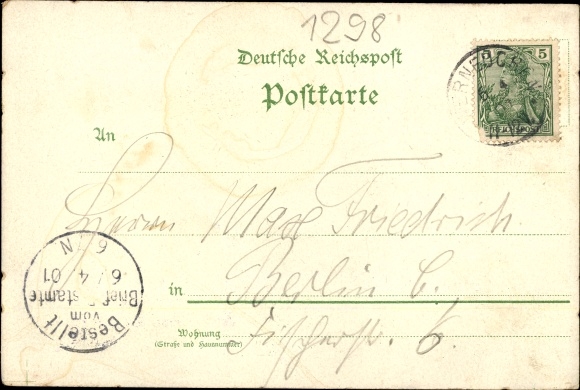 1298
Deutsche Reichspost
Postkarte
5
REICHSPOST
An
Herrn Max Friedrich
in Berlin C.
Wohnung
(Straße und Hausnummer)
Fischerstr. 6.
Bestellt
vom
Briefpostamte
6/4 01
6 7 N